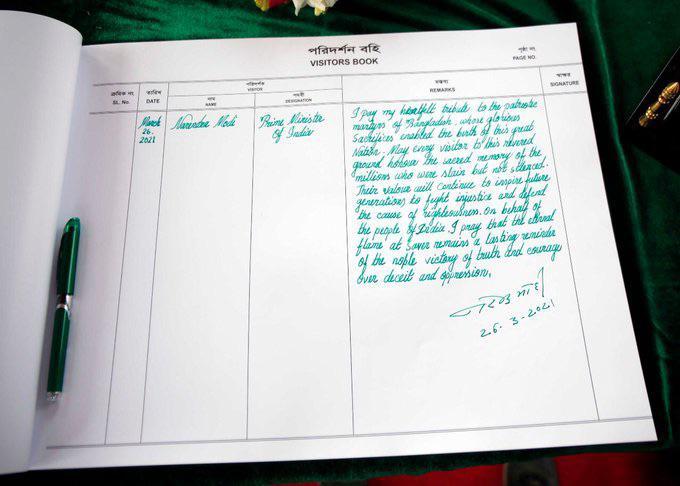 পরিদর্শন বহি
VISITORS BOOK
পৃষ্ঠা নং
PAGE NO.
ক্রমিক নং
SL. No.
তারিখ
DATE
পরিদর্শক
VISITOR
নাম
NAME
পদবী
DESIGNATION
মন্তব্য
REMARKS
স্বাক্ষর
SIGNATURE
March
26,
2021
Narendra Modi
Prime Minister
Of India
I pay my heartfelt tribute to the patriotic
martyrs of Bangladesh, whose glorious
Sacrifices enabled the birth of this great
Nation. May every visitor to this revered
ground honour the sacred memory of the
millions who were slain but not silenced.
Their valour will continue to inspire future
generations to fight injustice and defend
the cause of righteousness. On behalf of
the people of India, I pray that the eternal
flame at Saver remains a lasting reminder
of the nople victory of truth and courage
over deceit and oppression.
26-3-2021